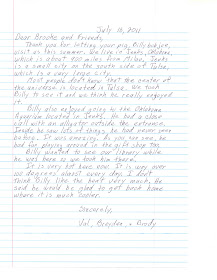 July 16, 2011
Dear Brooke and Friends,
Thank you for letting your pig, Billy
visit us this summer. We live in Jenks, Oklahoma,
which is about 900 miles from Milan. Jenks
is a small city on the south side of Tulsa,
which is a very large city.
Most people don't know that the center of
the universe is located in Tulsa. We took
Billy to see it and we think he really enjoyed
it.
Billy also enjoyed going to the Oklahoma
Aquarium located in Jenks. He had a close
call with an alligator outside the entrance.
Inside he saw lots of things he had never seen
before. It was amazing. As you can see, he
had fun playing around in the gift shop too.
Billy wanted to see our library while
he was here so we took him there.
It is very hot here now. It is very over
100 degrees almost every day. I don't
think Billy like the heat very much. He
said he would be glad to get back home
where it is much cooler.
Sincerely,
Val, Brayden + Brody